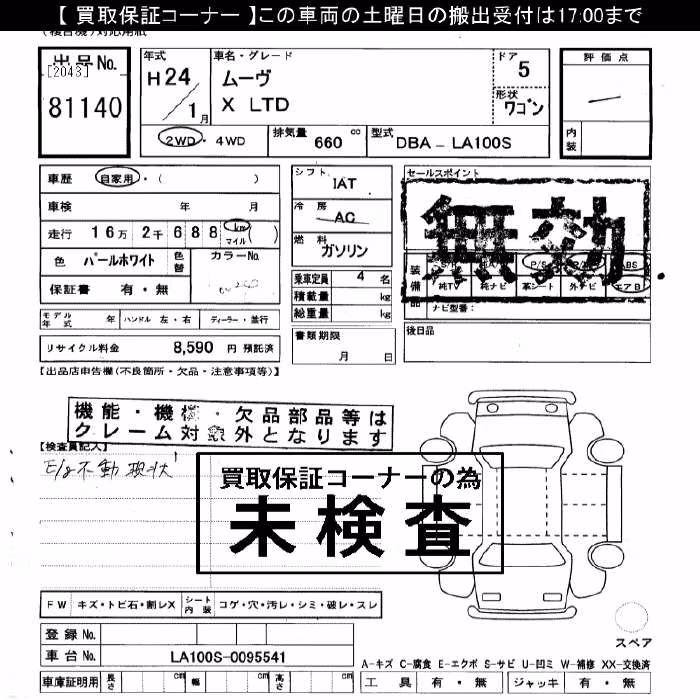 【 買取保証コーナー 】この車両の土曜日の搬出受付は17:00まで
出品No.
[2043]
81140
年式
H24/1月
車名・グレード
ムーヴ
X LTD
ドア
5
形状
ワゴン
評価点
内装
2WD・4WD
排気量 660 cc
型式 DBA－LA100S
車歴 自家用・( )
車検 年 月
走行 16万 2千 688 km マイル ( )
色 パールホワイト 色替 カラーNo.
保証書 有・無
モデル年式 年 ハンドル 左・右 ディーラー・並行
リサイクル料金 8,590 円 預託済
シフト
IAT
冷房
AC
燃料
ガソリン
乗車定員 4 名
積載量 kg
総重量 kg
書類期限
月 日
セールスポイント
無効
装備品
P/S
ABS
純TV 純ナビ 革シート 外ナビ エアB
ナビ型番：
後日品
【出品店申告欄(不良箇所・欠品・注意事項等)】
機能・機構・欠品部品等は
クレーム対象外となります
【検査員記入】
E/g不動 現状
買取保証コーナーの為
未検査
FW キズ・トビ石・割レX シート内装 コゲ・穴・汚レ・シミ・破レ・スレ
登録No.
車台No. LA100S-0095541
車庫証明用 長さ cm 幅 cm 高さ cm
スペア
A-キズ C-腐食 E-エクボ S-サビ U-凹ミ W-補修 XX-交換済
工具 有・無 ジャッキ 有・無